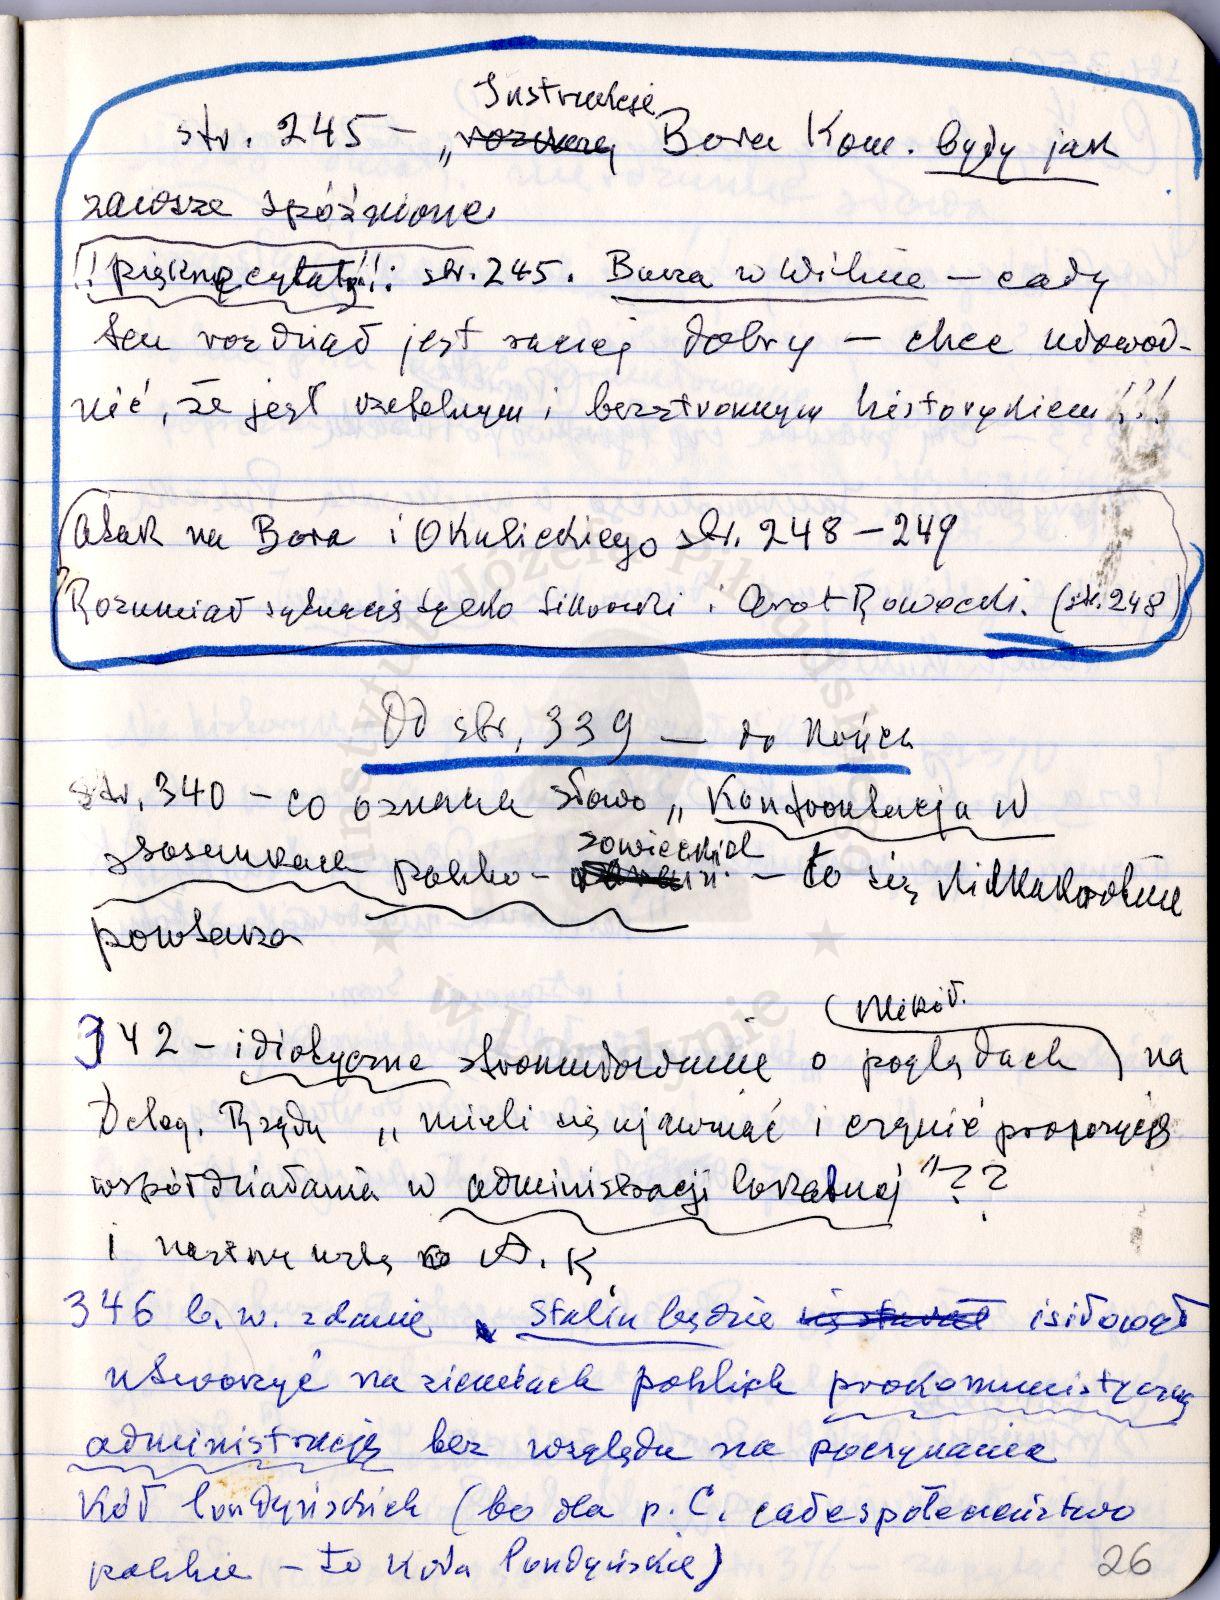 Instrukcje
str. 245 – „rozkazy Bora Kom. były jak
zawsze spóźnione.
!! piękne cytaty!!: str. 245. Burza w Wilnie – cały
ten rozdział jest raczej dobry – chce udowod-
nić, że jest rzetelnym i bezstronnym historykiem!!!
Atak na Bora i Okulickiego str. 248 – 249
Rozumiał sytuację tylko Sikorski i Grot Rowecki. (str. 248)
Od str. 339 – do końca
str. 340 – co oznacza słowo „Konfrontacja w
sowieckich
stosunkach polsko- – to się kilkakrotnie
powtarza
Mikoł.
342 – idiotyczne sformułowanie o poglądach na
Deleg. Rządu „mieli się ujawniać i czynić propozycje
współdziałania w administracji lokalnej"??
i A.K.
346 b. w. zdanie Stalin będzie usiłował
utworzyć na ziemiach polskich prokomunistyczną
administrację bez względu na poczynania
Kół londyńskich (bo dla p. C. całe społeczeństwo
polskie – to koła londyńskie)
26
Instytut Józefa Piłsudskiego
w Londynie